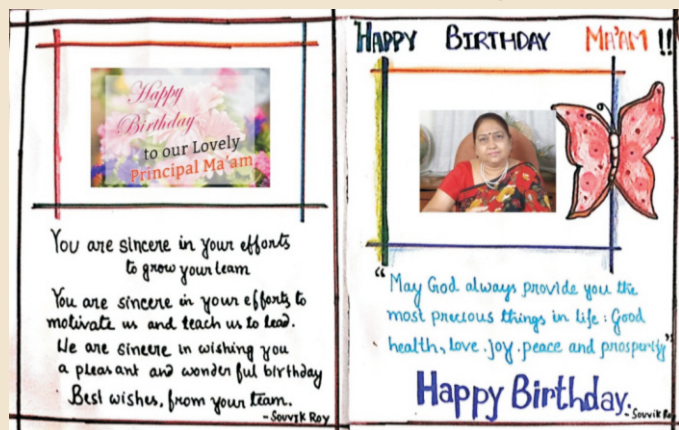 Happy
Birthday
to our Lovely
Principal Ma'am
You are sincere in your efforts
to grow your team
You are sincere in your efforts to
motivate us and teach us to lead.
We are sincere in wishing you
a pleasant and wonderful birthday
Best wishes, from your team.
- Souvik Roy
HAPPY BIRTHDAY MA'AM !!
"May God always provide you the
most precious things in life : Good
health, love, joy, peace and prosperity"
Happy Birthday.
- Souvik Roy